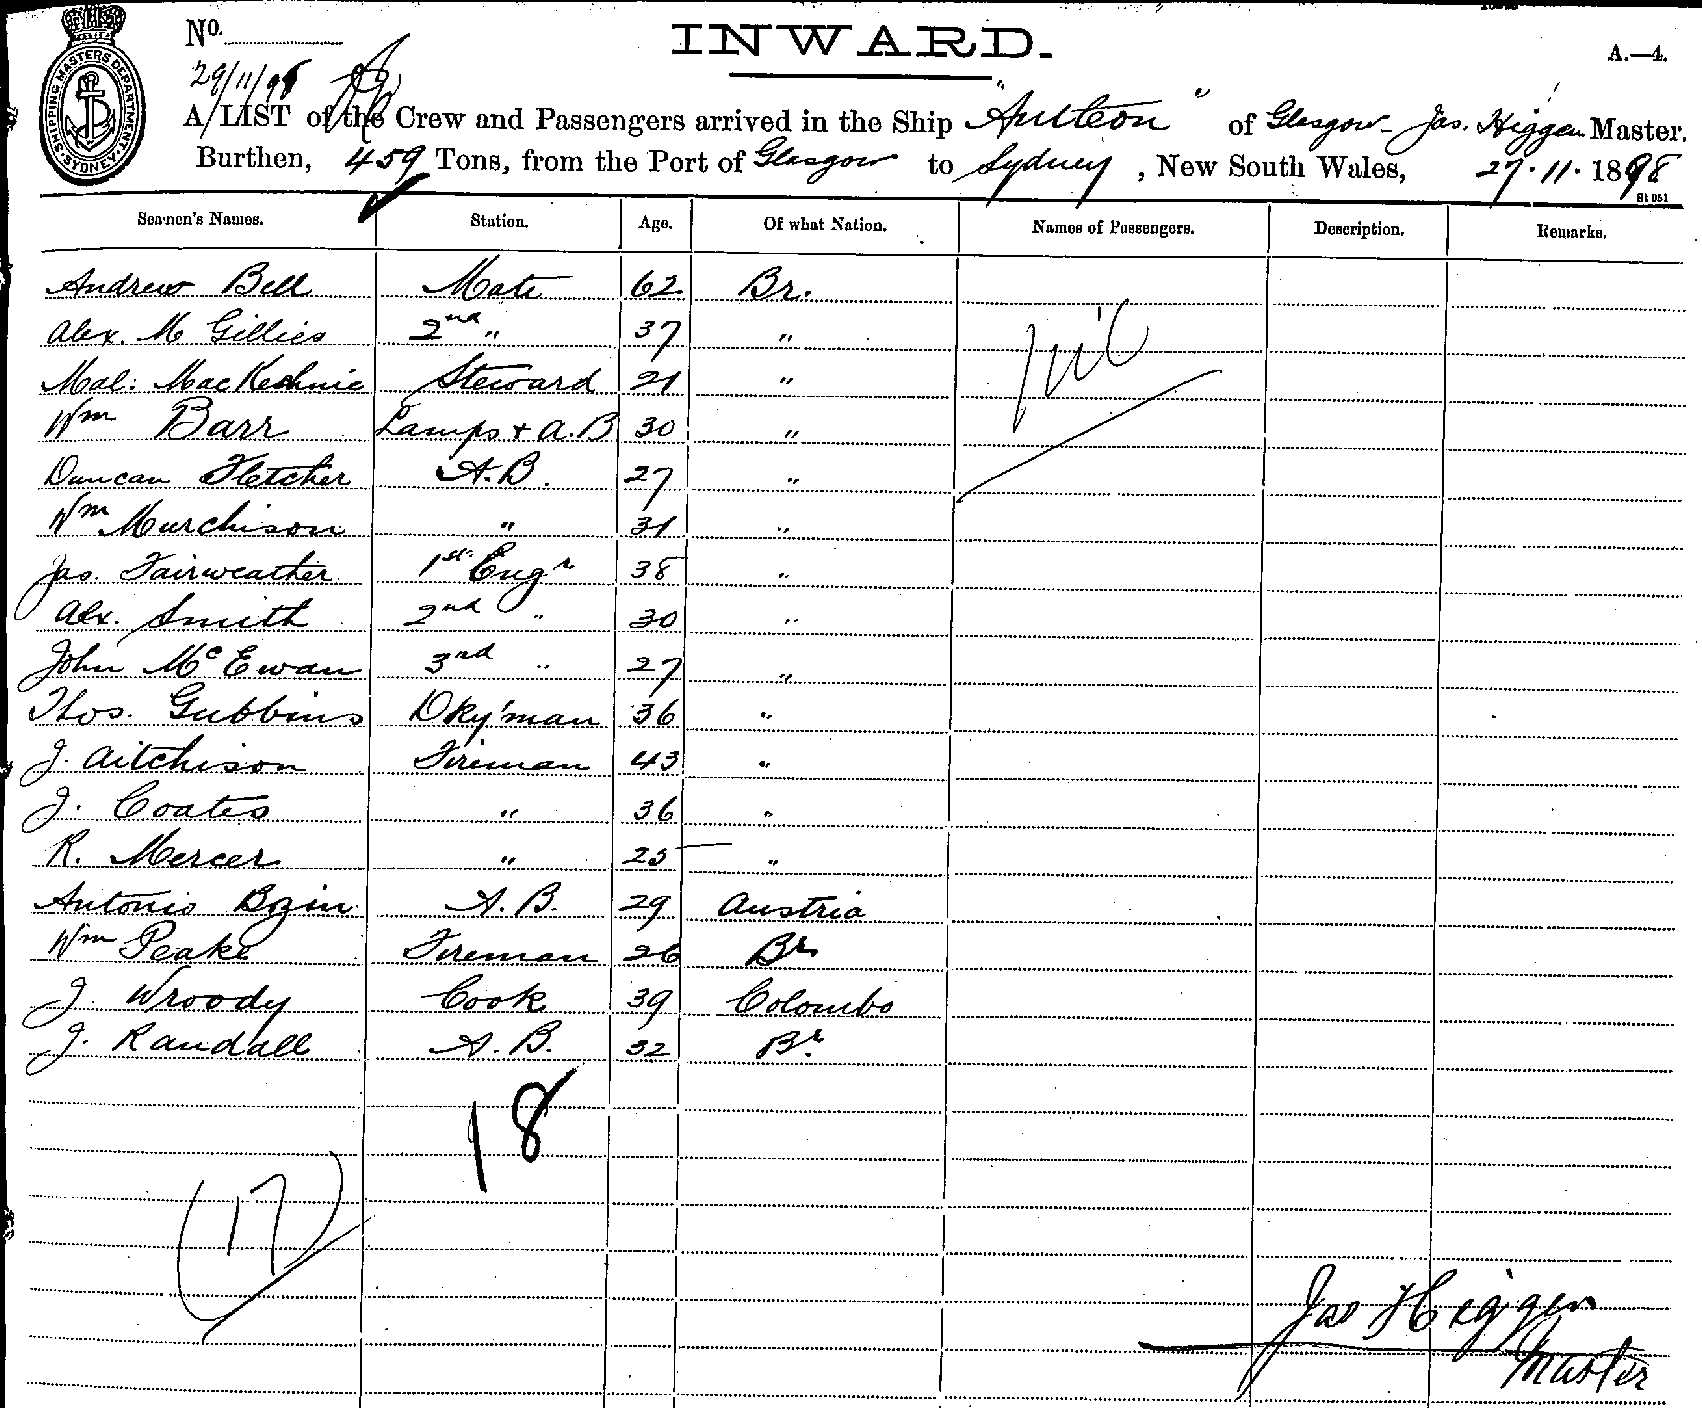 No.
INWARD.
A.—4.
29/11/98
SHIPPING MASTERS DEPARTMENT. SYDNEY
A LIST of the Crew and Passengers arrived in the Ship " " of Glasgow - Jas. Higgen Master.
Burthen, 459 Tons, from the Port of Glasgow to Sydney, New South Wales, 27.11.1898
Seamen's Names. Station. Age. Of what Nation. Names of Passengers. Description. Remarks.
Andrew Bell Mate 62 Br.
Alex. M Gillies 2nd " 37 "
Mal: MacKechnie Steward 21 "
Wm Barr Lamps + A.B 30 "
Duncan Fletcher A.B. 27 "
Wm Murchison " 31 "
Jas. Fairweather 1st Engr 38 "
Alex. Smith 2nd " 30 "
John McEwan 3rd " 27 "
Thos. Gubbins Dky'man 36 "
J. Aitchison Fireman 43 "
J. Coates " 36 "
R. Mercer " 25 "
Antonio Bozin A.B. 29 Austria
Wm Peake Fireman 26 Br
J. Wroody Cook 39 Colombo
J. Randall A.B. 32 Br.
Nil
18
(17)
Jas Higgen
Master